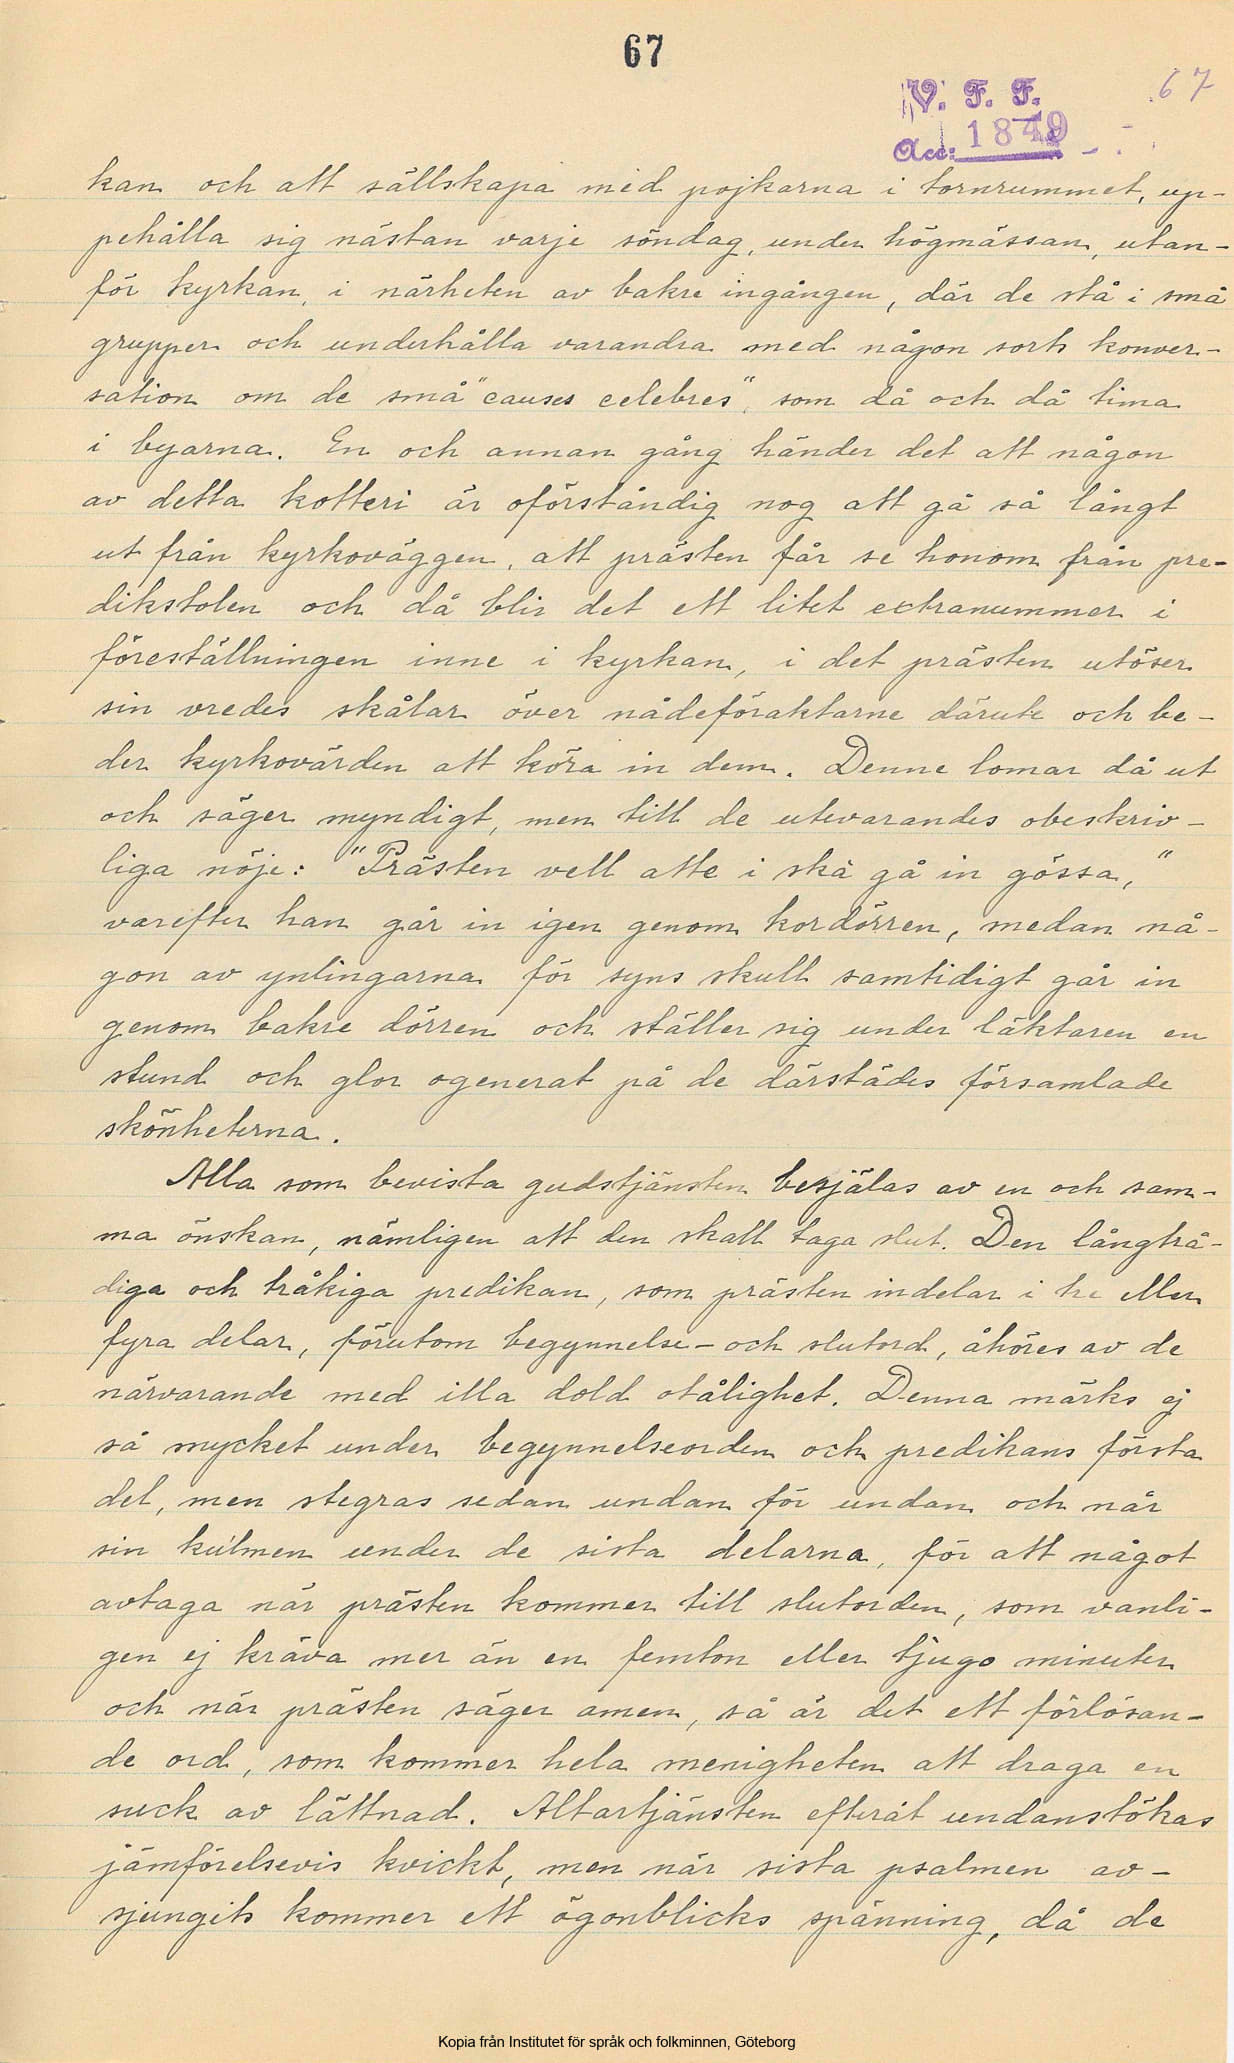 67
V. F. F.
67
Acc: 1849
kan och att sällskapa med pojkarna i tornrummet, up-
pehålla sig nästan varje söndag, under högmässan, utan-
för kyrkan, i närheten av bakre ingången, där de stå i små
grupper och underhålla varandra med någon sorts konver-
sation om de små "causes celebres", som då och då tima
i byarna. En och annan gång händer det att någon
av detta kotteri är oförståndig nog att gå så långt
ut från kyrkoväggen, att prästen får se honom från pre-
dikstolen och då blir det ett litet extranummer i
föreställningen inne i kyrkan, i det prästen utöser
sin vredes skålar över nådeföraktarne därute och be-
der kyrkovärden att köra in dem. Denne lomar då ut
och säger myndigt, men till de utevarandes obeskriv-
liga nöje: "Prästen vell atte i skå gå in gössa,"
varefter han går in igen genom kordörren, medan nå-
gon av ynlingarna för syns skull samtidigt går in
genom bakre dörren och ställer sig under läktaren en
stund och glor ogenerat på de därstädes församlade
skönheterna.
Alla som bevista gudstjänsten besjälas av en och sam-
ma önskan, nämligen att den skall taga slut. Den långträ-
diga och tråkiga predikan, som prästen indelar i tre eller
fyra delar, förutom begynnelse- och slutord, åhöres av de
närvarande med illa dold otålighet. Denna märks ej
så mycket under begynnelseorden och predikans första
del, men stegras sedan undan för undan och når
sin kulmen under de sista delarna, för att något
avtaga när prästen kommer till slutorden, som vanli-
gen ej kräva mer än en femton eller tjugo minuter
och när prästen säger amen, så är det ett förlösan-
de ord, som kommer hela menigheten att draga en
suck av lättnad. Altartjänsten efteråt undanstökas
jämförelsevis kvickt, men när sista psalmen av-
sjungits kommer ett ögonblicks spänning, då de
Kopia från Institutet för språk och folkminnen, Göteborg